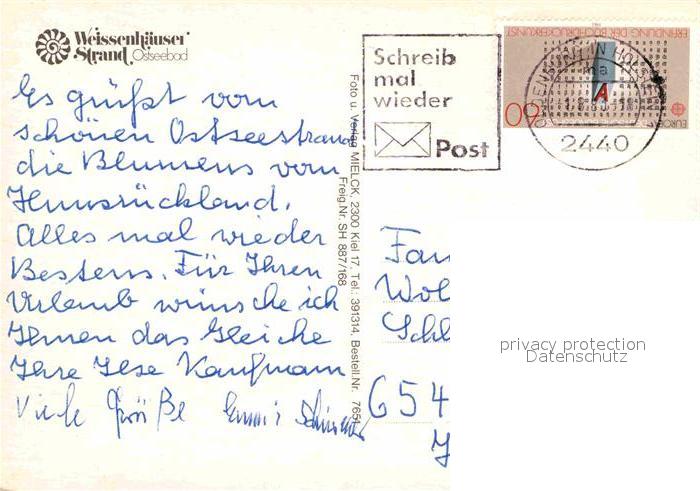 Weissenhäuser
Strand Ostseebad
Es grüßt vom
schönen Ostseestrand
die Blumens vom
Hunsrückland.
Alles mal wieder
Bestens. Für Ihren
Urlaub wünsche ich
Ihnen das Gleiche
Ihre Ilse Kaufmann
Viele Grüße
Foto u. Verlag MIELCK, 2300 Kiel 17, Tel.: 391314, Bestell.Nr. 7651
Freig.Nr. SH 887/168
Schreib
mal
wieder
Post
ERFINDUNG DER BUCHDRUCKERKUNST
EUROPA
60
A
2440
Fam
Wol
Schl
654
privacy protection
Datenschutz